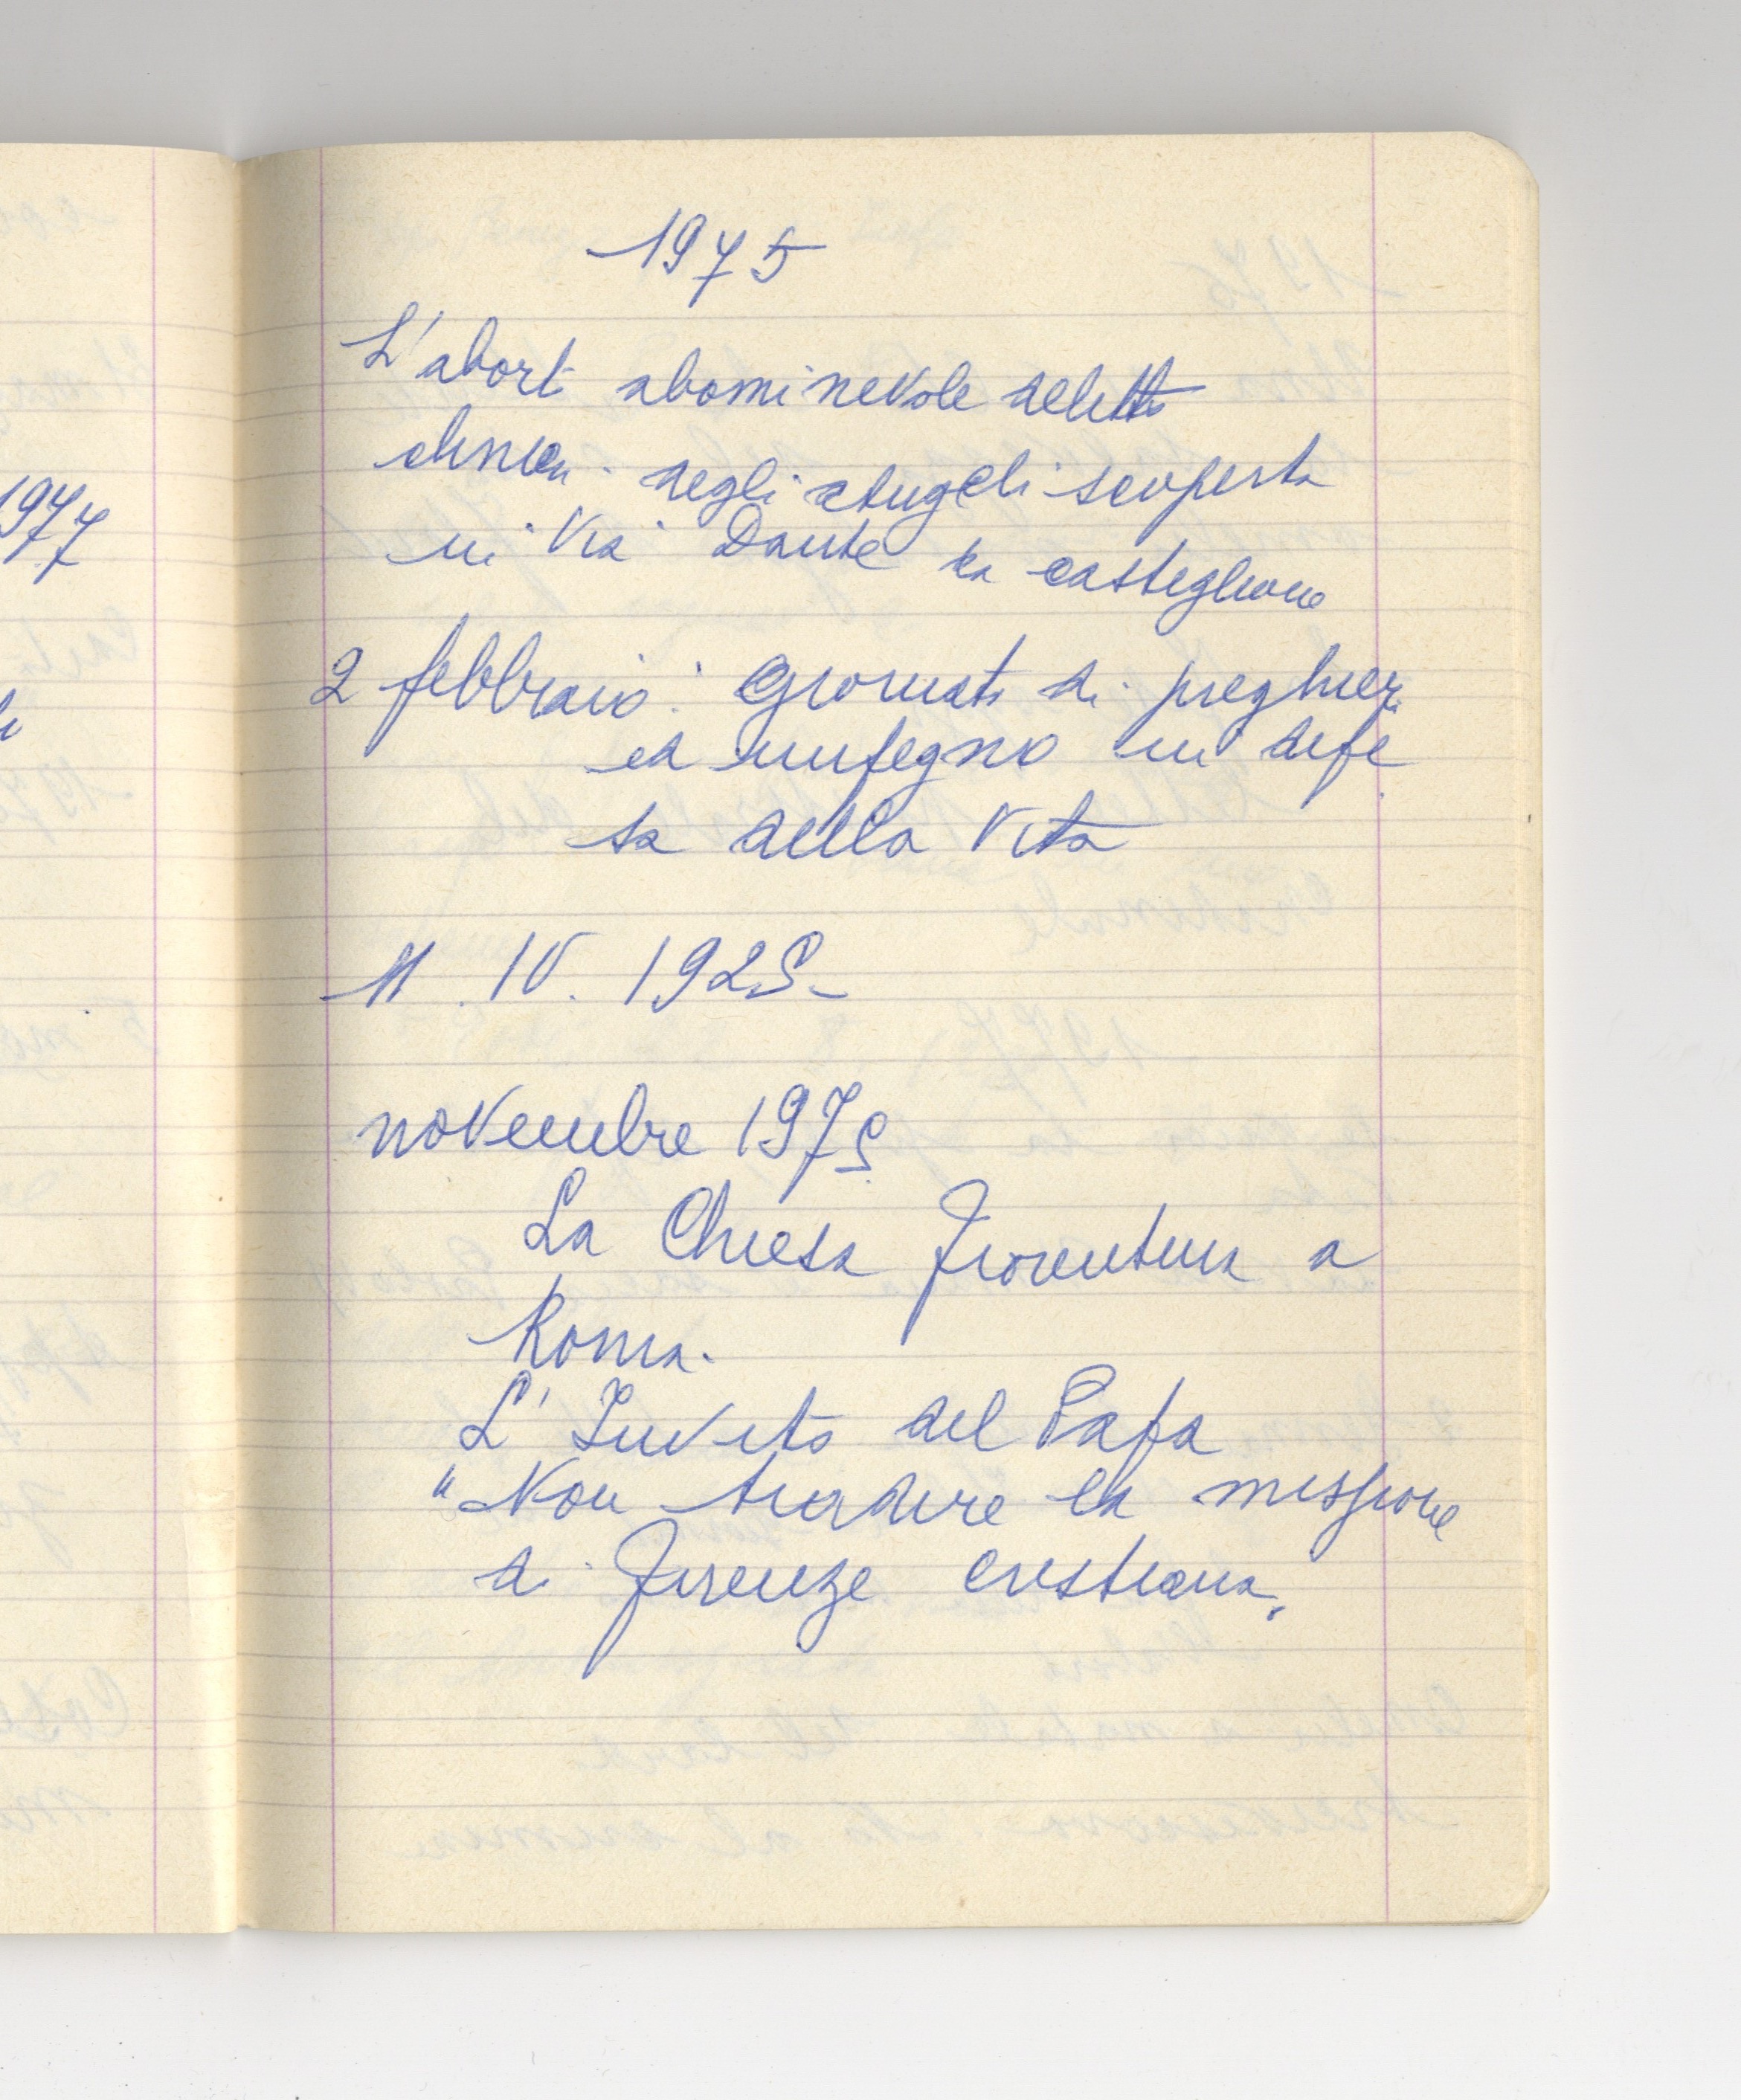 1977
1975
L'aborto abominevole delitto
clinica degli angeli scoperta
in Via Dante da Castiglione
2 febbraio: Giornata di preghiera
ed impegno in dife
sa della Vita
11. IV. 1925-
novembre 1975
La Chiesa Fiorentina a
Roma.
L'Invito del Papa
"Non tradire la missione
di Firenze cristiana"